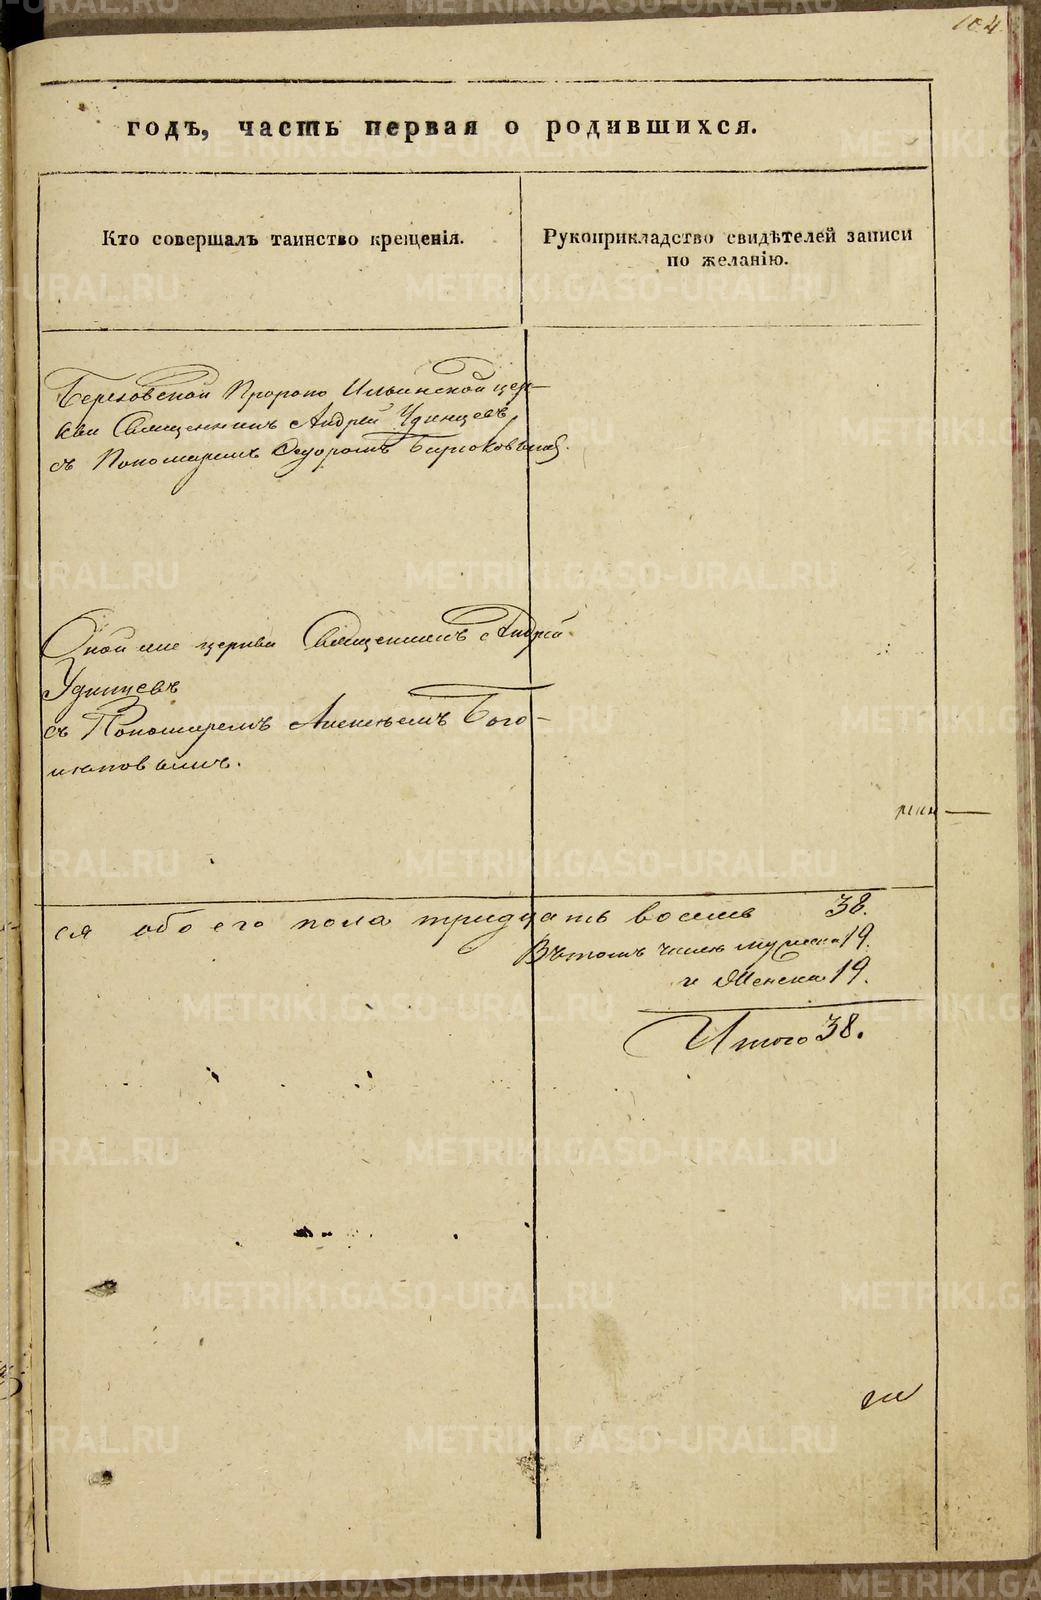 104.
годъ, часть первая о родившихся.
Кто совершалъ таинство крещенія.
Рукоприкладство свидѣтелей записи
по желанію.
Пророко Ильинской цер-
кви Священникъ Андрей Удинцевъ
съ Пономаремъ Ѳедоромъ Бирюковымъ.
Оной же церкви Священникъ Андрей
Удинцевъ
съ Пономаремъ Алексѣемъ Бого-
ся обоего пола тридцать восемь 38.
Въ томъ числѣ мужеска 19.
и Женска 19.
Итого 38.
METRIKI.GASO-URAL.RU